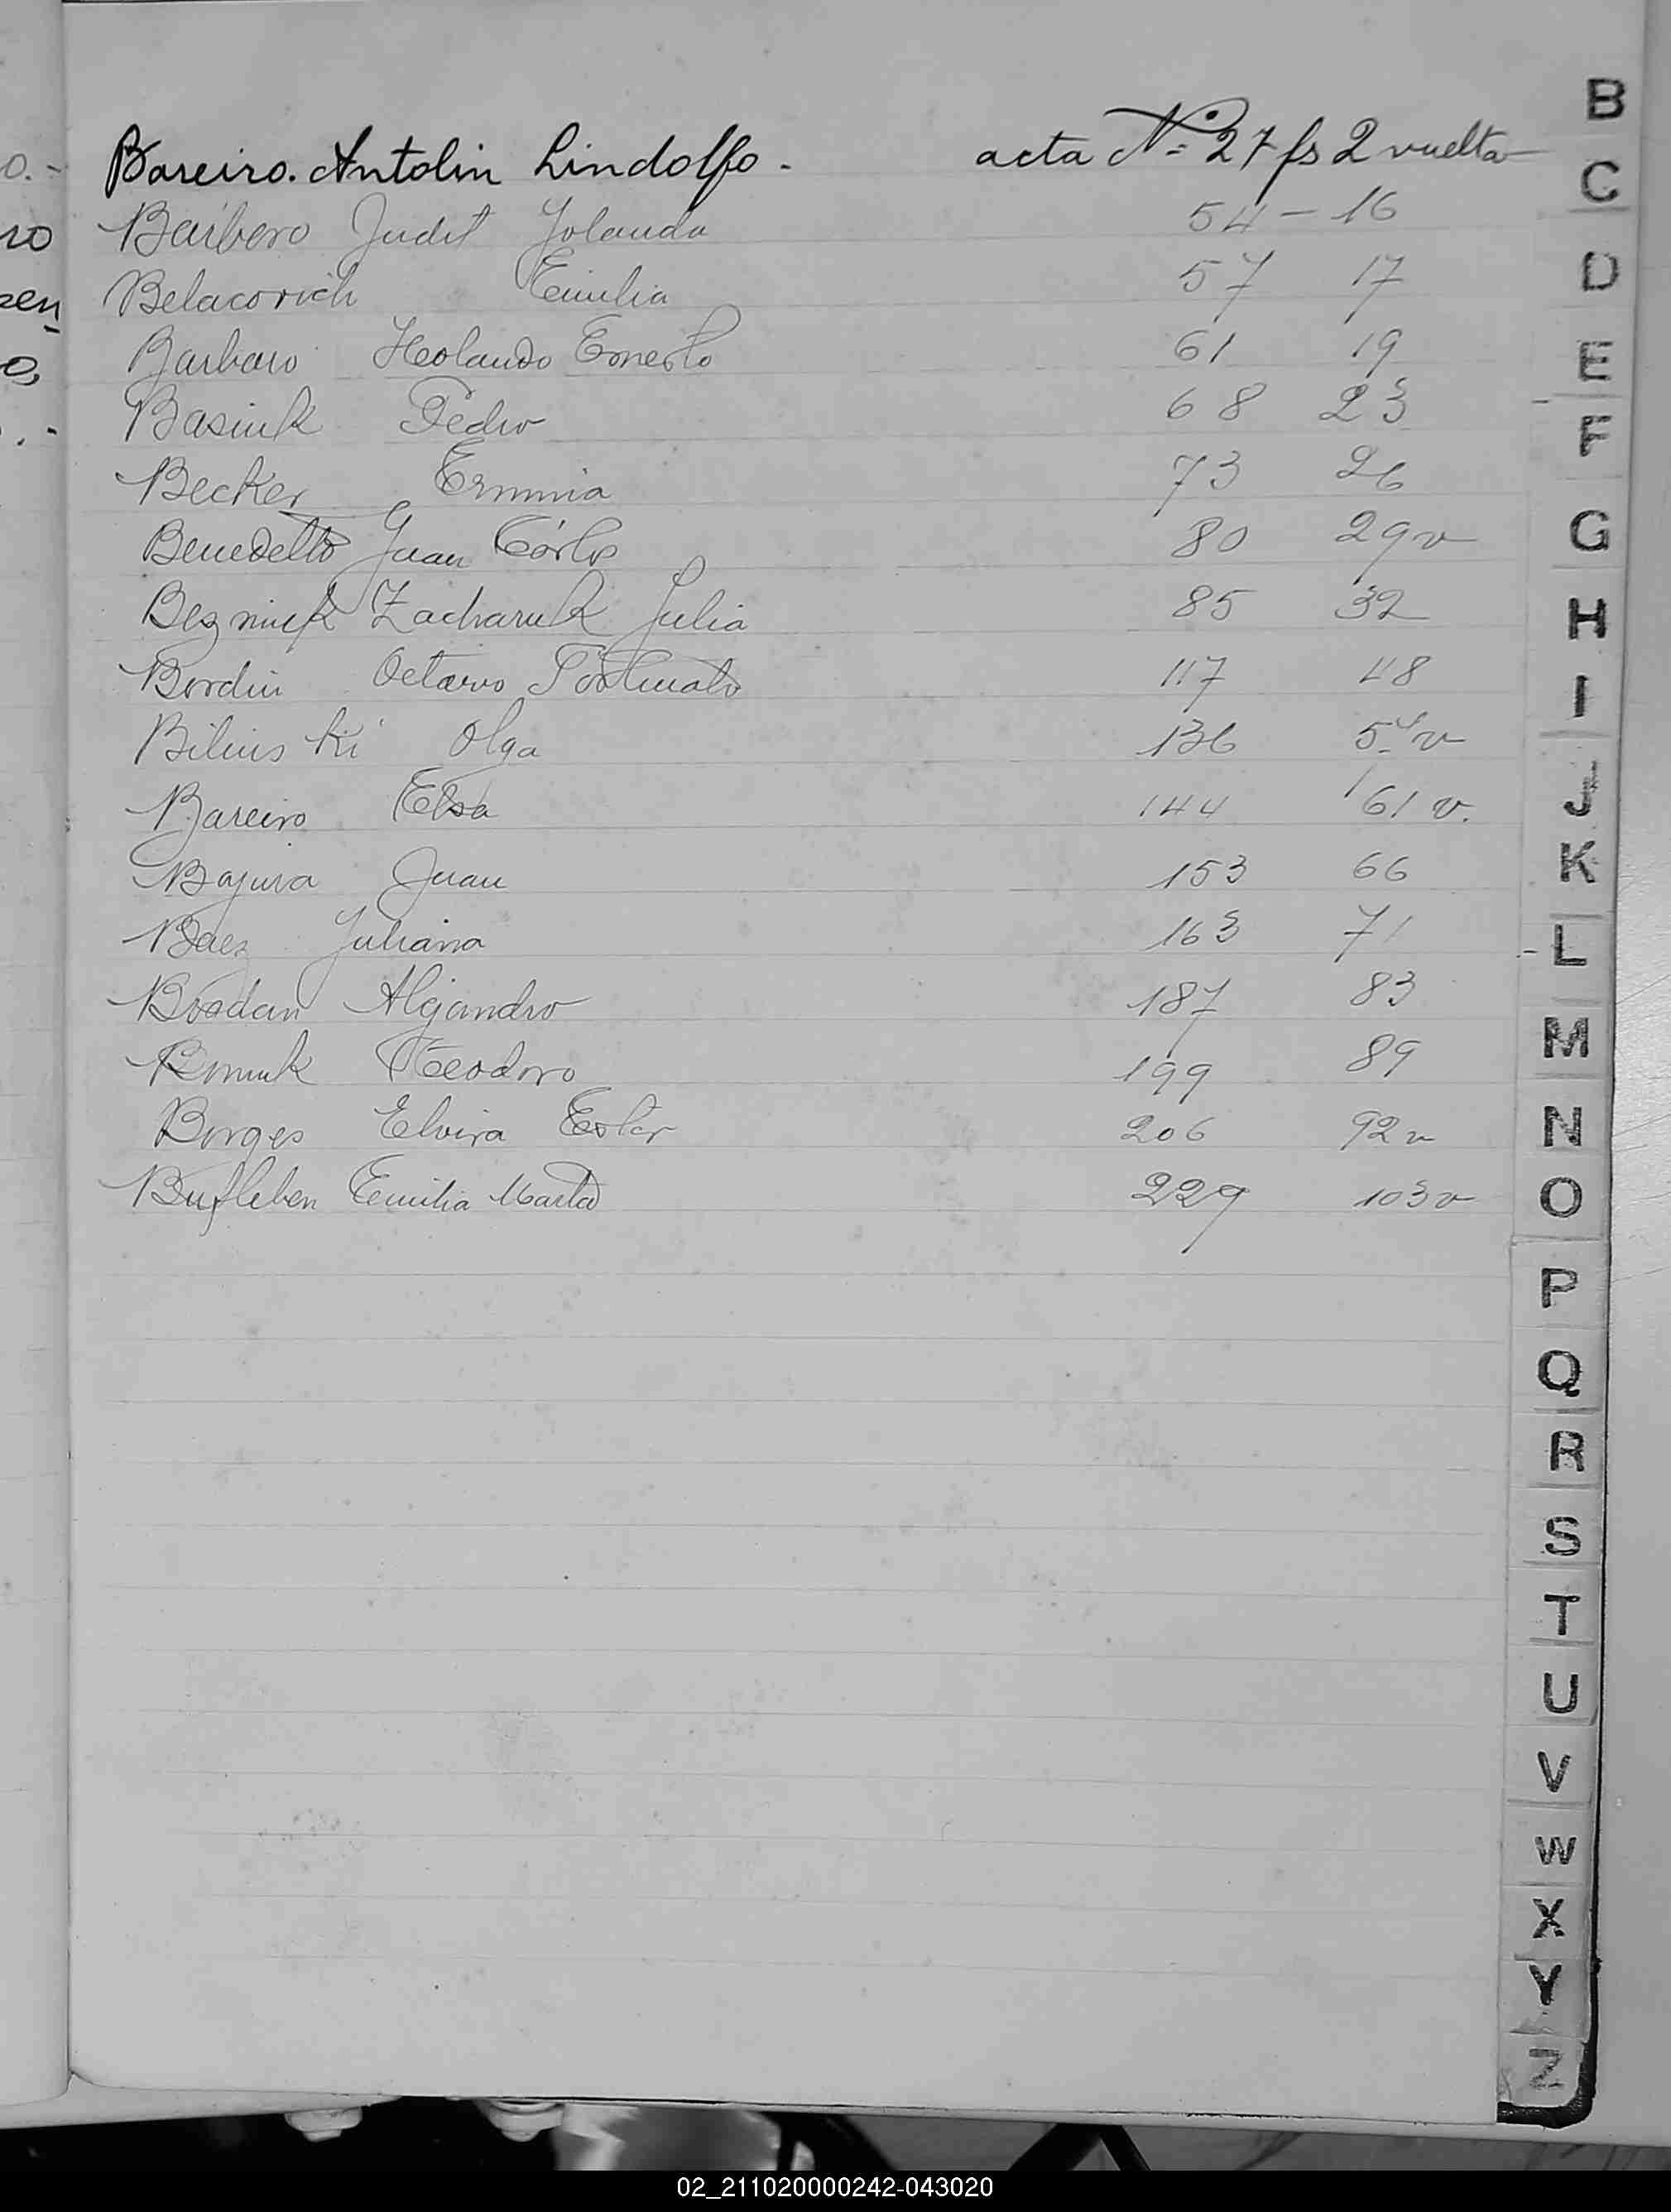 Bareiro. Antolin Lindolfo. - acta Nº 27 fs 2 vuelta
Barbero Judit Yolanda 54 - 16
Belacovich Emilia 57 17
Barbaro Ernesto 61 19
Basiuk Pedro 68 23
Becker Erminia 73 26
Benedetto Juan Cárlos 80 29 v
Bezniuk Zacharuk Julia 85 32
Bordin Octavio Fortunato 117 48
Bilinski Olga 136 v
Bareiro Elsa 144 61 v.
Bajura Juan 153 66
Baez Juliana 163 71
Bosdan Alejandro 187 83
Teodoro 199 89
Borges Elvira Ester 206 92 v
Bufleben Emilia Marta 229 103 v
B
C
D
E
F
G
H
I
J
K
L
M
N
O
P
Q
R
S
T
U
V
W
X
Y
Z
02_211020000242-043020